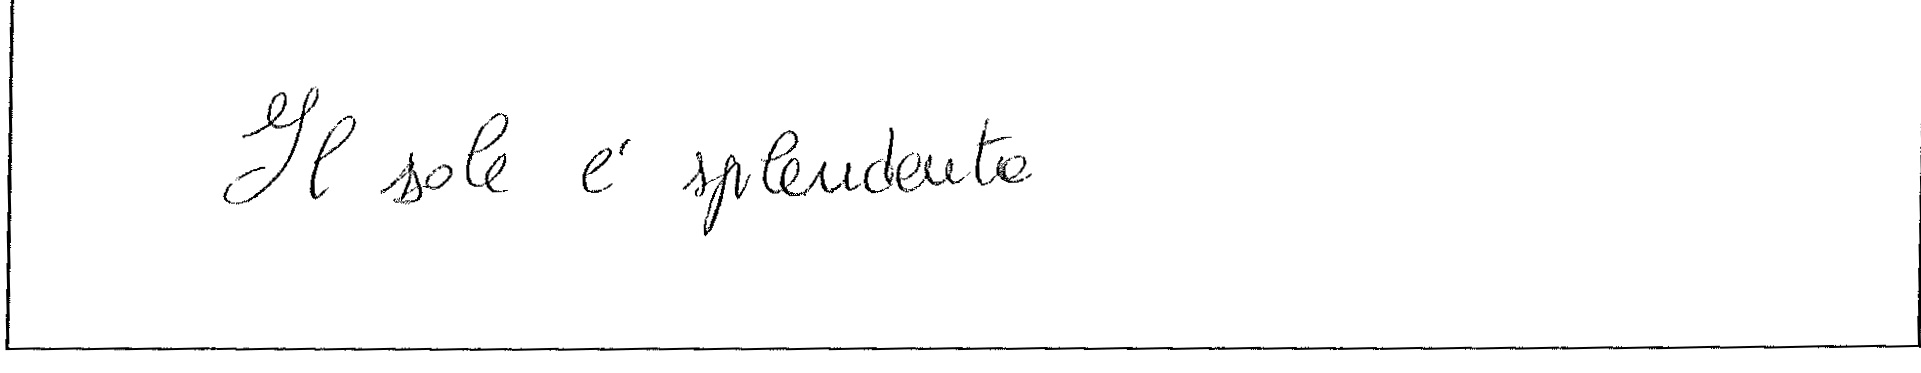 Il sole e' splendente